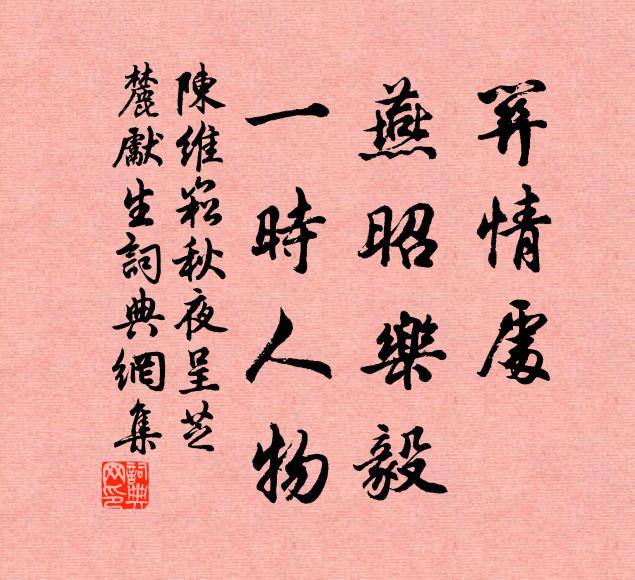 關情處
燕昭樂毅
一時人物
陳維崧秋夜呈芝
麓獻生詞典網集
詞典
网印